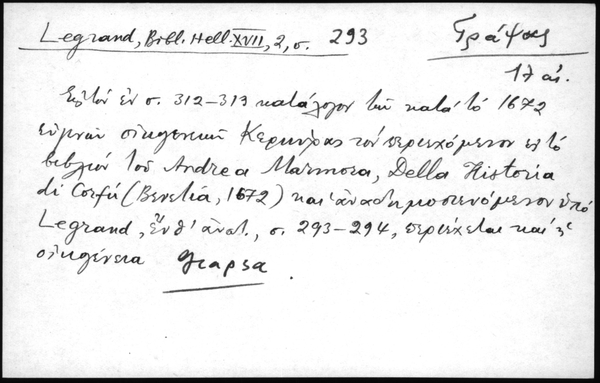 Legrand, Bibl. Hell. XVII, 2, σ. 293
Γράψας
17 αἰ.
Εἰς τὸν ἐν σ. 312–313 κατάλογον τῶν κατὰ τὸ 1672
εὐγενῶν οἰκογενειῶν Κερκύρας τὸν περιεχόμενον εἰς τὸ
βιβλίον τοῦ Andrea Marmora, Della Historia
di Corfú (Βενετία, 1672) καὶ ἀναδημοσιευόμενον ὑπὸ
Legrand, ἔνθ' ἀνωτ., σ. 293–294, περιέχεται καὶ ἡ
οἰκογένεια Grapsa.